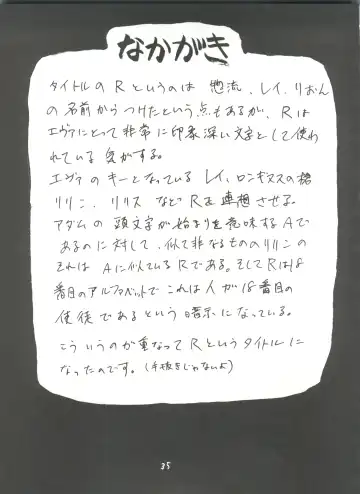 なかがき
タイトルの Rというのは 惣流、レイ、りおん
の名前からつけたという点もあるが、Rは
エヴァにとって非常に印象深い文字として使わ
れている気がする。
エヴァのキーとなっているレイ、ロンギヌスの槍
リリン、リリス などRを連想させる。
アダムの頭文字が始まりを意味するAで
あるのに対して、似て非なるもののリリンの
それは Aに似ているRである。そしてRは18
番目のアルファベットでこれは人が18番目の
使徒であるという暗示になっている。
こういうのが重なってRというタイトルに
なったのです。(手抜きじゃないよ)
35